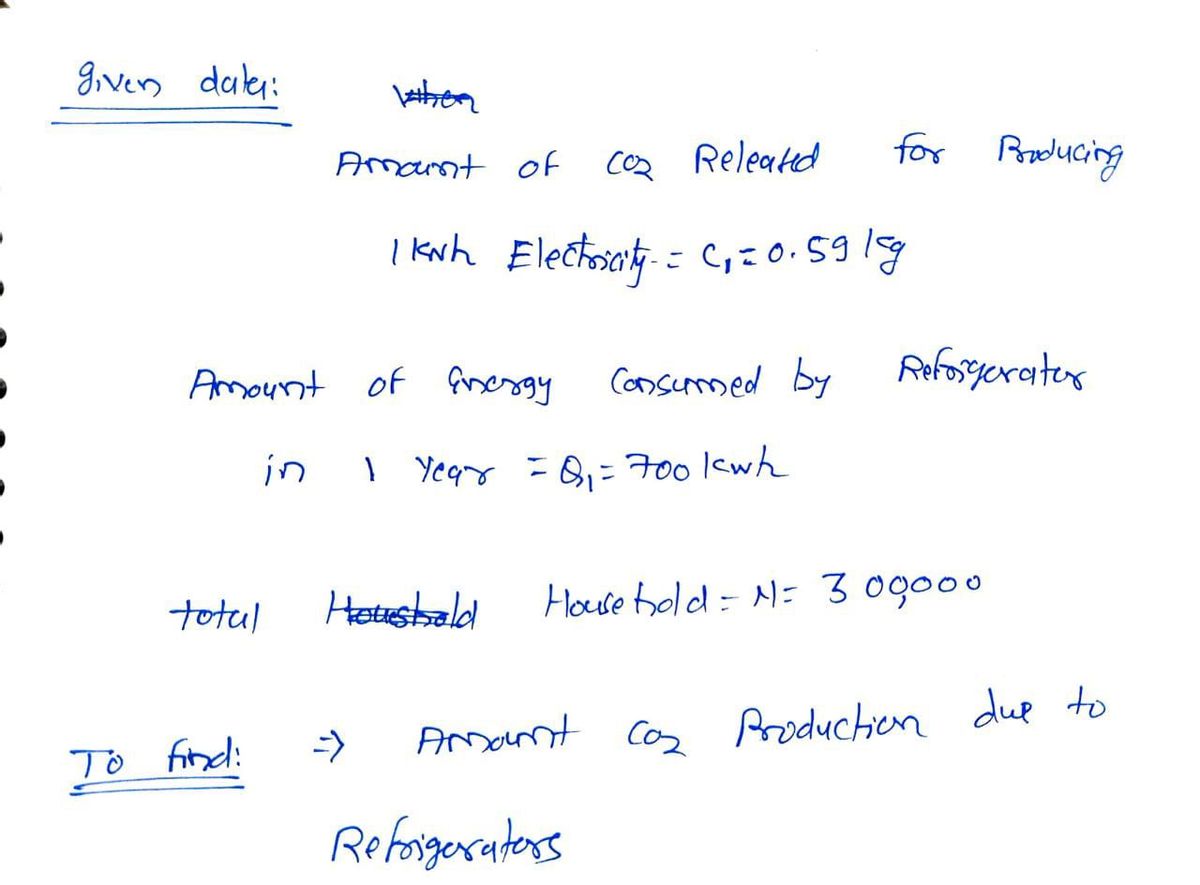 given data:
Amount of CO2 Released for Producing
1 kwh Electricity = C1 = 0.59 kg
Amount of Energy Consumed by Refrigerator
in 1 Year = Q1 = 700 kwh
total Household = N = 300,000
To find: => Amount CO2 Production due to
Refrigerators